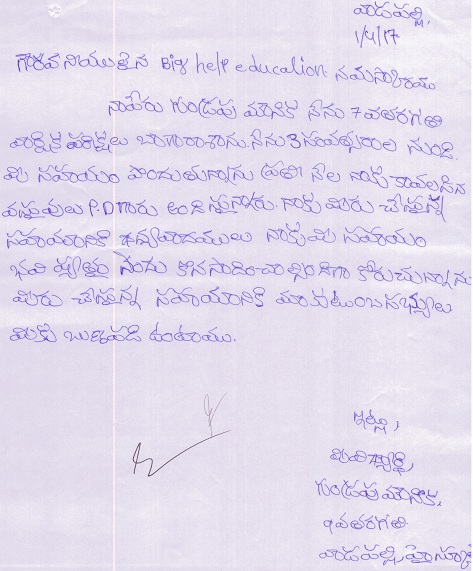 వాడపల్లి,
1/4/17
గౌరవనీయులైన Big help education నమస్కారము
నాపేరు గుండ్రపు మౌనిక నేను 7వతరగతి
వార్షిక పరీక్షలు బాగారాశాను. నేను 3సంవత్సరాల నుండి.
మీ సహాయం పొందుతున్నాను ప్రతి నెల నాకు కావలసిన
వస్తువులు P.Dగారు అందిస్తున్నారు. నాకు మీరు చేస్తున్న
సహాయానికి ధన్యవాదములు నాకు మీ సహాయం
భవిష్యత్తు నందు కొనసాగించాల్సిందిగా కోరుచున్నాను
మీరు చేస్తున్న సహాయానికి మా కుటుంబసభ్యులు
మీకు ఋణపడి ఉంటాము.
ఇట్లు,
మీవిద్యార్థి,
గుండ్రపు మౌనిక,
వతరగతి
వాడపల్లి, హైస్కూల్